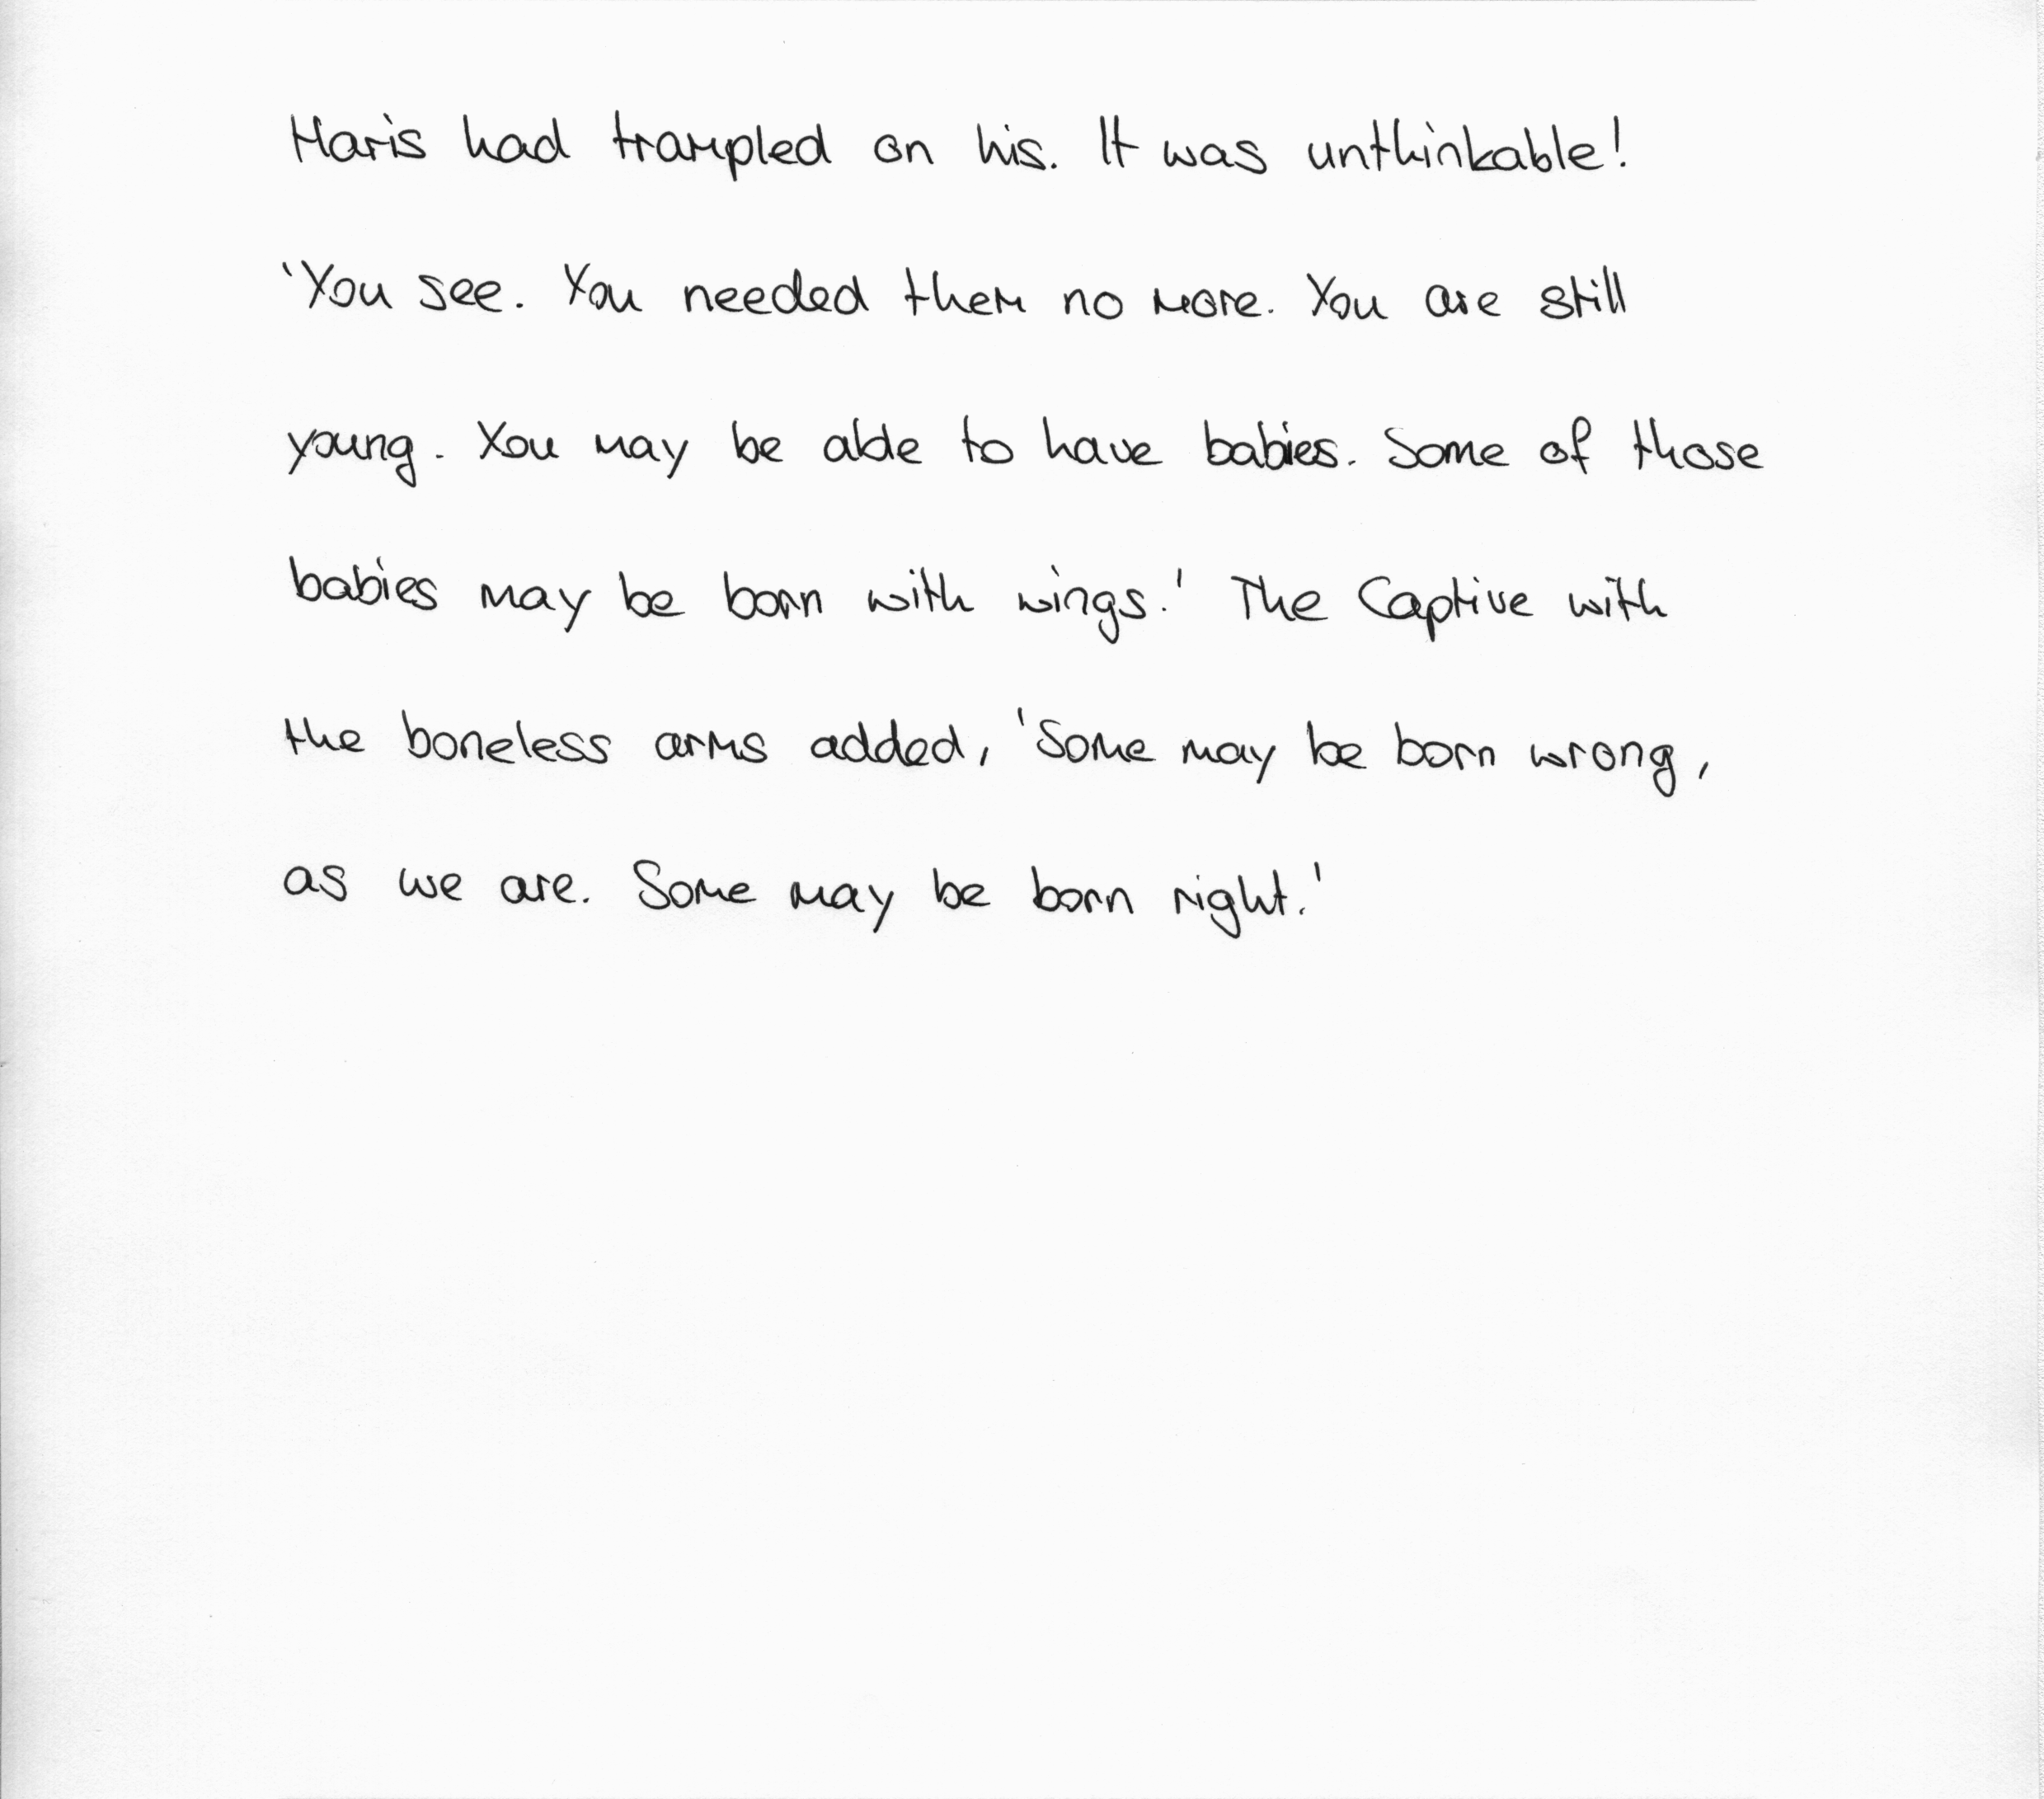 Haris had trampled on his. It was unthinkable!
'You see. You needed them no more. You are still
young. You may be able to have babies. Some of those
babies may be born with wings.' The Captive with
the boneless arms added, 'Some may be born wrong,
as we are. Some may be born right.'